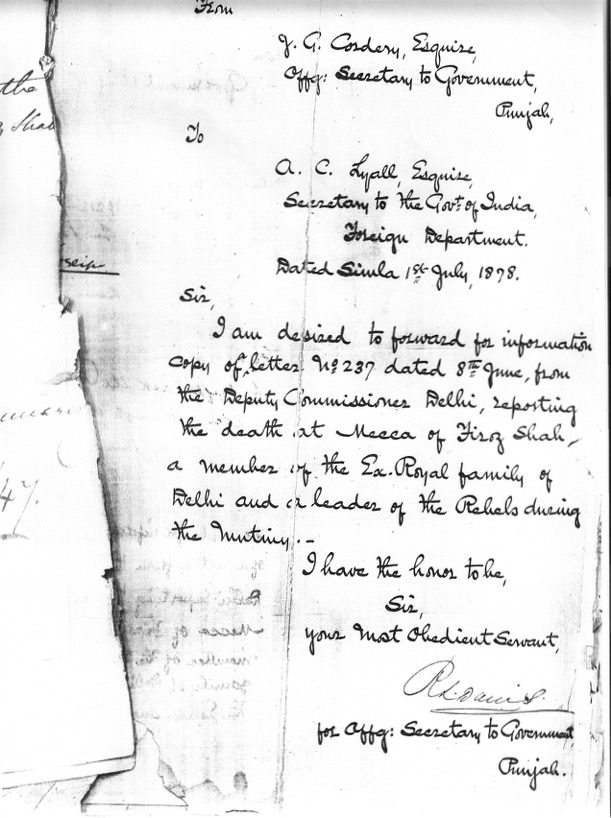 From
J. G. Cordery, Esquire,
Offg: Secretary to Government,
Punjab,
To
A. C. Lyall, Esquire,
Secretary to the Govt. of India,
Foreign Department.
Dated Simla 1st July, 1878.
Sir,
I am desired to forward for information
copy of letter No 237 dated 8th June, from
the Deputy Commissioner Delhi, reporting
the death at Mecca of Firoz Shah,
a member of the Ex-Royal family of
Delhi and a leader of the Rebels during
the Mutiny.-
I have the honor to be,
Sir,
your Most Obedient Servant,
for Offg: Secretary to Government
Punjab.
the
Shah
47.